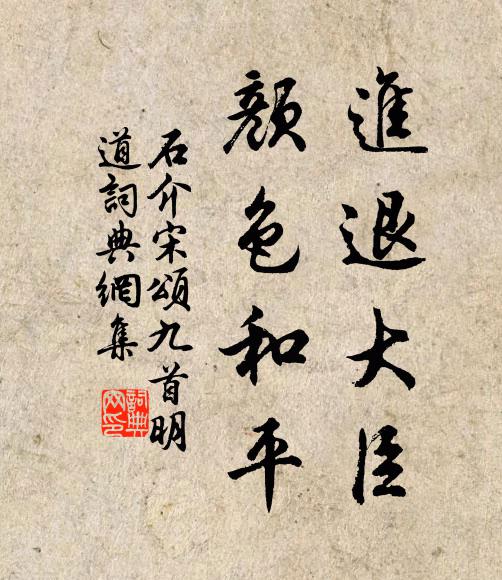 進退大臣
顔色和平
石介宋頌九首明
道詞典網集
詞典
网印